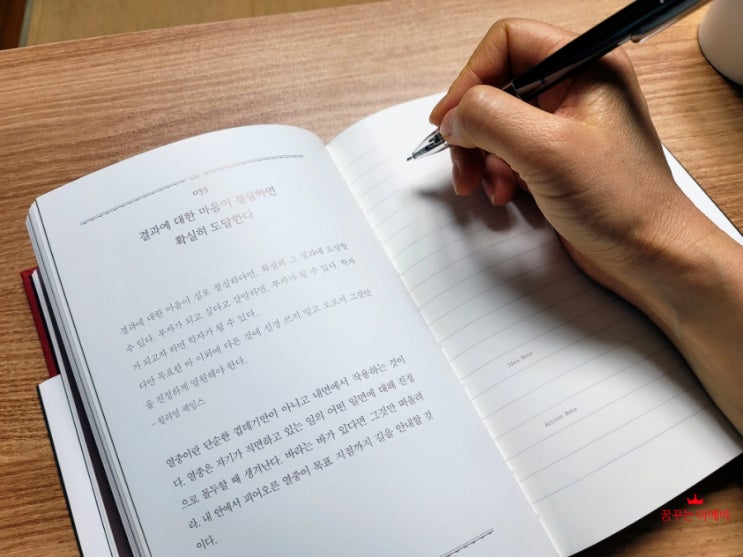 035
결과에 대한 마음이 절실하면
확실히 도달한다
결과에 대한 마음이 실로 절실하다면, 확실히 그 결과에 도달할
수 있다. 부자가 되고 싶다고 갈망하면, 부자가 될 수 있다. 학자
가 되고자 하면 학자가 될 수 있다.
다만 목표한 바 이외에 다른 것에 신경 쓰지 말고 오로지 그것만
을 진정하게 염원해야 한다.
- 윌리엄 제임스
열중이란 단순한 겉태기만이 아니고 내면에서 작용하는 것이
다. 열중은 자기가 직면하고 있는 일의 어떤 일면에 대해 진정
으로 몰두할 때 생겨난다. 바라는 바가 있다면 그것만 떠올려
라. 내 안에서 피어오른 열중이 목표 지점까지 길을 안내할 것
이다.
Idea Note
Action Note
꿈꾸는